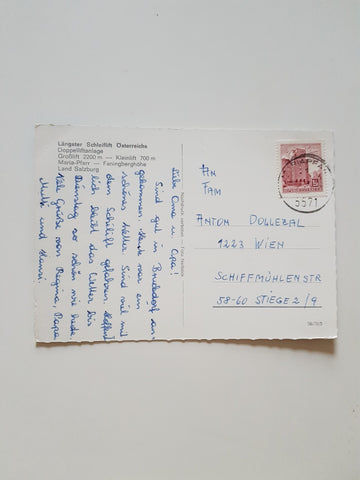 Längster Schleiflift Österreichs
Doppelliftanlage
Großlift 2200 m — Kleinlift 700 m
Maria-Pfarr — Fanningberghöhe
Land Salzburg
Liebe Oma u. Opa!
Sind gut in an-
gekommen. Heute war ein
schönes Wetter. Sind viel mit
dem Schilift gefahren. Hoffent-
lich bleibt das Wetter bis
Dienstag so schön wie heute.
Viele Grüße von Regina, Papa
Mutti und Hansi.
AN
FAM
ANTON DOLLEZAL
1223 WIEN
SCHIFFMÜHLENSTR
58-60 STIEGE 2/9
5571